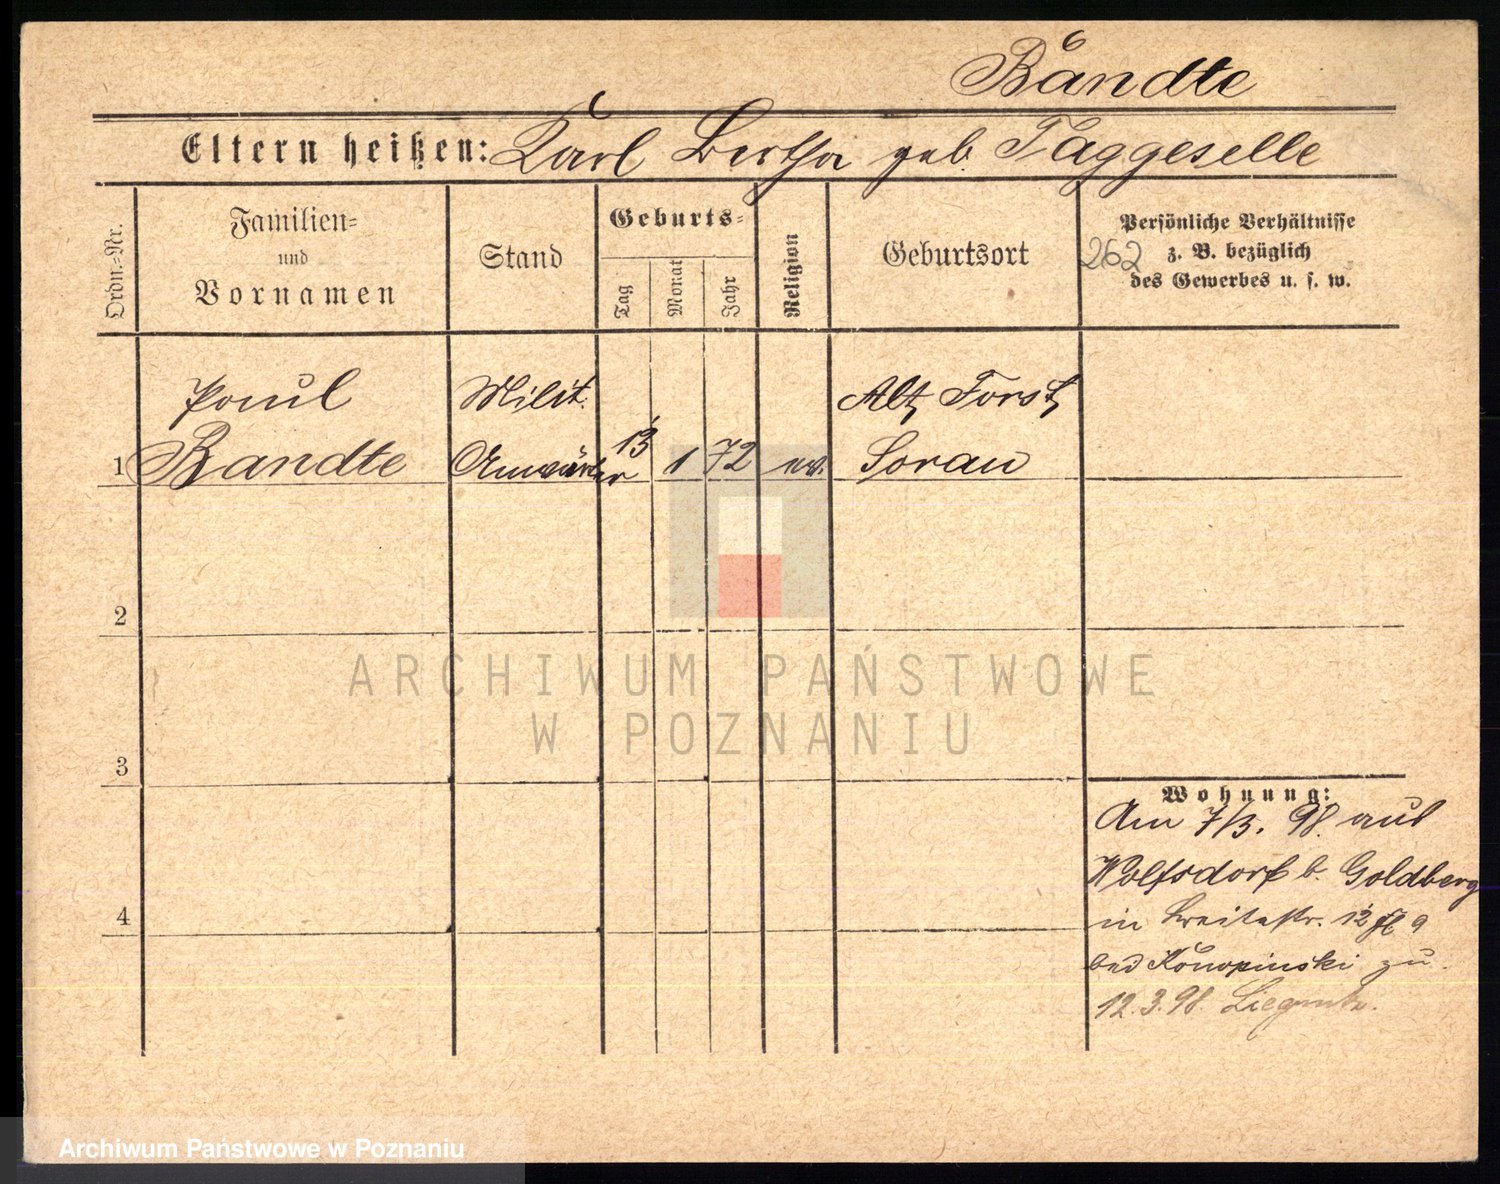 Bandte
Eltern heißen: Karl Bertha geb. Taggeselle
Ordn.=Nr.
Familien=
und
Vornamen
Stand
Geburts=
Tag
Monat
Jahr
Religion
Geburtsort
Persönliche Verhältnisse
z. B. bezüglich
des Gewerbes u. s. w.
262
Paul
Bandte
Milit.
Anwärter
1
13
1
72
ev.
Alt Forst
Sorau
2
3
4
Wohnung:
Am 7/3. 98. aus
Wolfsdorf b. Goldberg
in Breitestr. 12
bei Konopinski zu.
12.3.98. Liegnitz.
ARCHIWUM PAŃSTWOWE
W POZNANIU
Archiwum Państwowe w Poznaniu